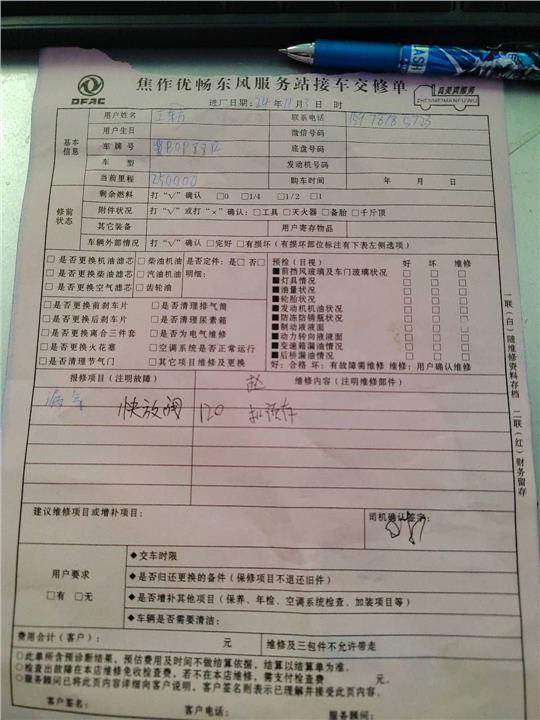 焦作优畅东风服务站接车交修单
DFAC
真美满服务
ZHENMEIMANFUWU
进厂日期：24 年 11 月 3 日 时
基本信息
用户姓名 联系电话
用户生日 微信号码
车牌号 底盘号码
车 型 发动机号码
当前里程 250000 购车时间 年 月 日
修前状态
剩余燃料 打“√”确认 □0 □1/4 □1/2 □1
附件状况 打“√”或打“×”确认：□工具 □灭火器 □备胎 □千斤顶
其它装备 用户寄存物品
车辆外部情况 打“√”确认 □完好 □有损坏（有损坏部位标注有下表左侧选项）
□是否更换机油滤芯 □柴油机油 是否定件：是□否□
□是否更换柴油滤芯 □汽油机油 明细：
□是否更换空气滤芯 □齿轮油
□是否更换前刹车片 □是否清理排气筒
□是否更换后刹车片 □是否清理尿素箱
□是否更换离合三件套 □是否为电气维修
□是否更换火花塞 □空调系统是否正常运行
□是否清理节气门 □其它项目维修及更换
预检（目视） 好 坏 维修
■前挡风玻璃及车门玻璃状况 □ □ □
■灯具情况 □ □ □
■油量状况 □ □ □
■轮胎状况 □ □ □
■发动机机油状况 □ □ □
■防冻防锈瓶状况 □ □ □
■制动液液面 □ □ □
■动力转向液液面 □ □ □
■变速箱漏油情况 □ □ □
■后桥漏油情况 □ □ □
好：合格 坏：有故障需维修 维修：用户确认维修
报修项目（注明故障） 赵 维修内容（注明维修部件）
快放阀 120
建议维修项目或增补项目： 司机确认签字：
用户要求
□有 □无
◆交车时限
◆是否归还更换的备件（保修项目不退还旧件）
◆是否增补其他项目（保养、年检、空调系统检查、加装项目等）
◆车辆是否需要清洁：
费用合计（客户）： 元 维修及三包件不允许带走
○此单所含预诊断结果，预估费用及时间不做结算依据，结算以结算单为准．
○检查出故障在本店维修免收检查费，若不在本店维修，需支付检查费 元．
○服务顾问已将此页内容详细向客户说明，客户签名则表示已理解并接受此页内容．
客户签名： 客户电话： 服务顾问：
一联（白）随维修资料存档 二联（红）财务留存